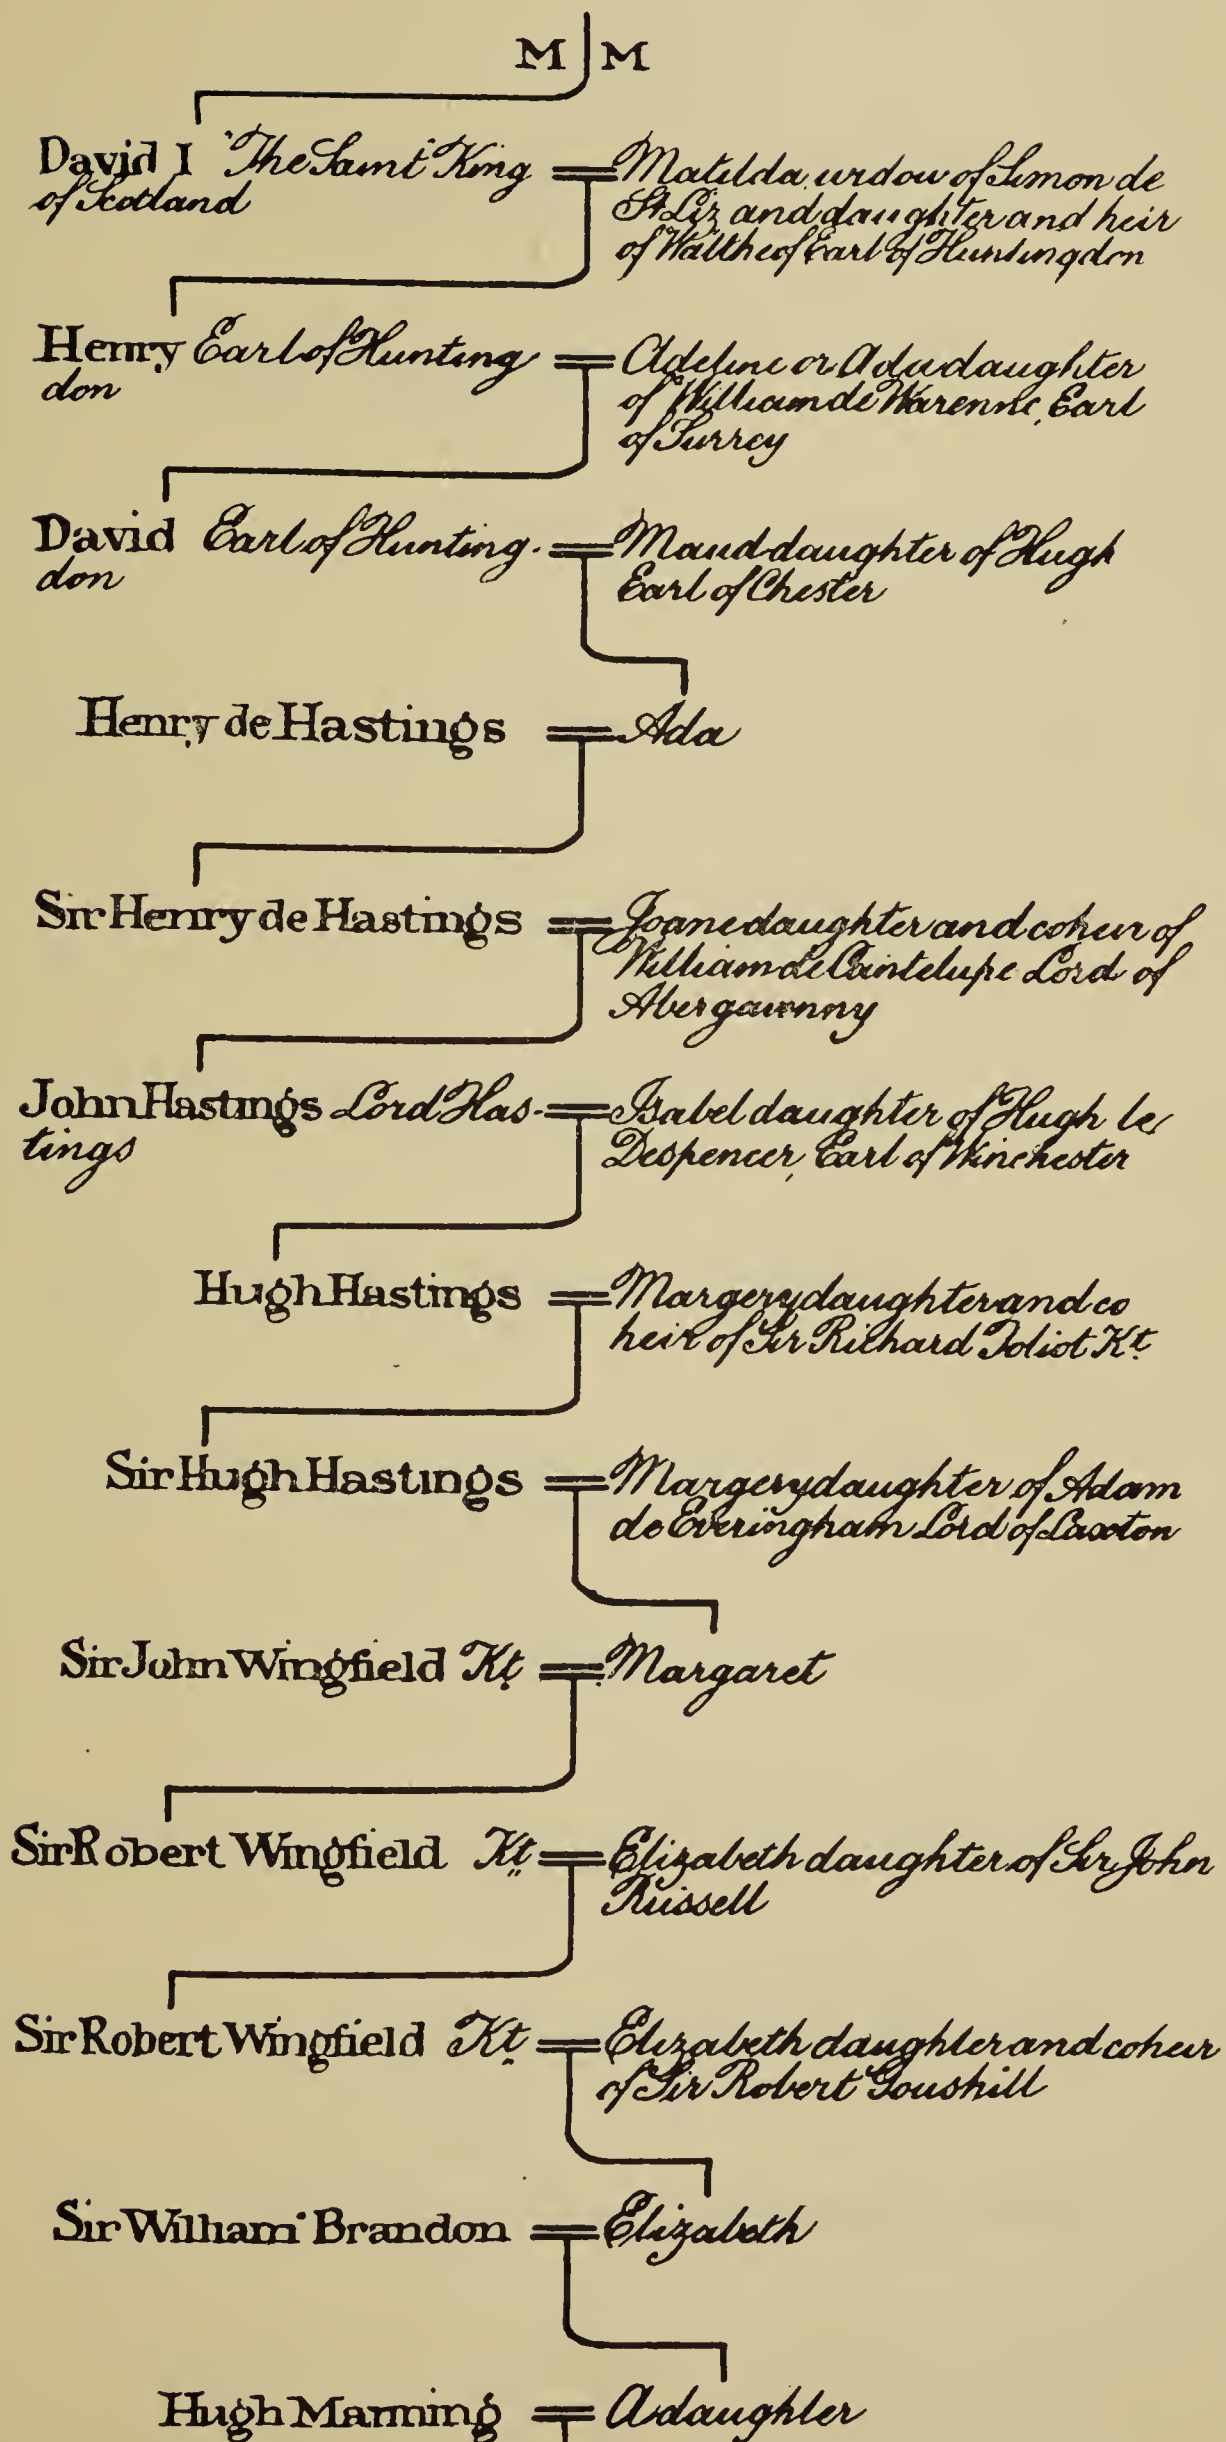 M M
David I "The Saint" King
of Scotland
Matilda, widow of Simon de
St Liz and daughter and heir
of Waltheof Earl of Huntingdon
Henry Earl of Hunting
don
Adeline or Ada daughter
of William de Warenne, Earl
of Surrey
David Earl of Hunting-
don
Maud daughter of Hugh
Earl of Chester
Henry de Hastings
Ada
Sir Henry de Hastings
Joane daughter and coheir of
William de Cantelupe Lord of
Abergavenny
John Hastings Lord Has-
tings
Isabel daughter of Hugh le
Despencer, Earl of Winchester
Hugh Hastings
Margery daughter and co
heir of Sir Richard Foliot Kt.
Sir Hugh Hastings
Margery daughter of Adam
de Everingham Lord of Laxton
Sir John Wingfield Kt.
Margaret
Sir Robert Wingfield Kt.
Elizabeth daughter of Sir John
Russell
Sir Robert Wingfield Kt.
Elizabeth daughter and coheir
of Sir Robert Goushill
Sir William Brandon
Elizabeth
Hugh Manning
A daughter